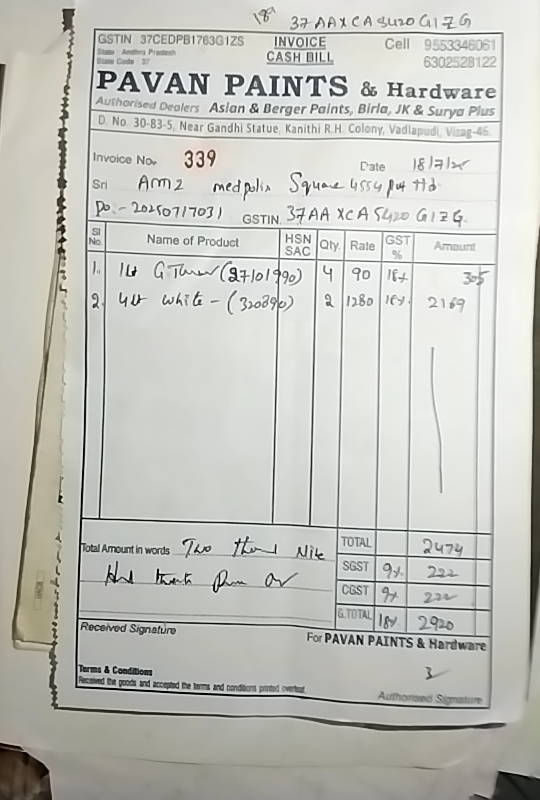 18ª 37AAXCA5420G1ZG
GSTIN 37CEDPB1763G1ZS INVOICE Cell 9553346061
State : Andhra Pradesh
State Code : 37 CASH BILL 6302528122
PAVAN PAINTS & Hardware
Authorised Dealers Asian & Berger Paints, Birla, JK & Surya Plus
D. No. 30-83-5, Near Gandhi Statue, Kanithi R.H. Colony, Vadlapudi, Vizag-46.
Invoice No. 339 Date 18/7/25
Sri AM2 medpolis Square 4554 Pvt ltd
Po.- 20250717031 GSTIN. 37AAXCA5420G1ZG.
Sl No. Name of Product HSN SAC Qty. Rate GST % Amount
1. 1Lt (27101990) 4 90 18%. 305
2. 4Lt White - (320890) 2 1280 18%. 2169
TOTAL 2474
Total Amount in words Two
SGST 9%. 222
CGST 9%. 222
G.TOTAL 18%. 2920
Received Signature
For PAVAN PAINTS & Hardware
Terms & Conditions
Received the goods and accepted the terms and conditions printed overleaf.
Authorised Signature